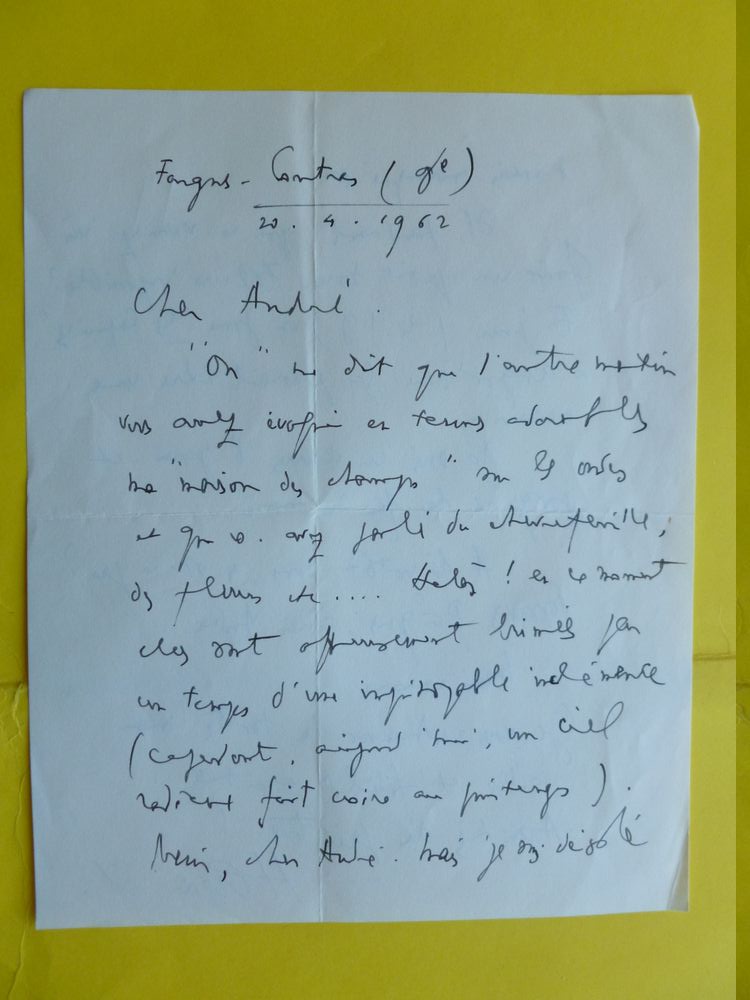 (ge)
20 . 4 . 1962
Cher André .
"On" me dit que l'autre matin
vous avez évoqué en termes adorables
ma "maison des champs" sur les ondes
et que v. avez parlé du chèvrefeuille,
des fleurs etc .... Hélas ! en ce moment
elles sont affreusement brimées par
un temps d'une impitoyable inclémence
(cependant, aujourd'hui, un ciel
radieux fait croire au printemps) .
Merci, cher André . Mais je suis désolé